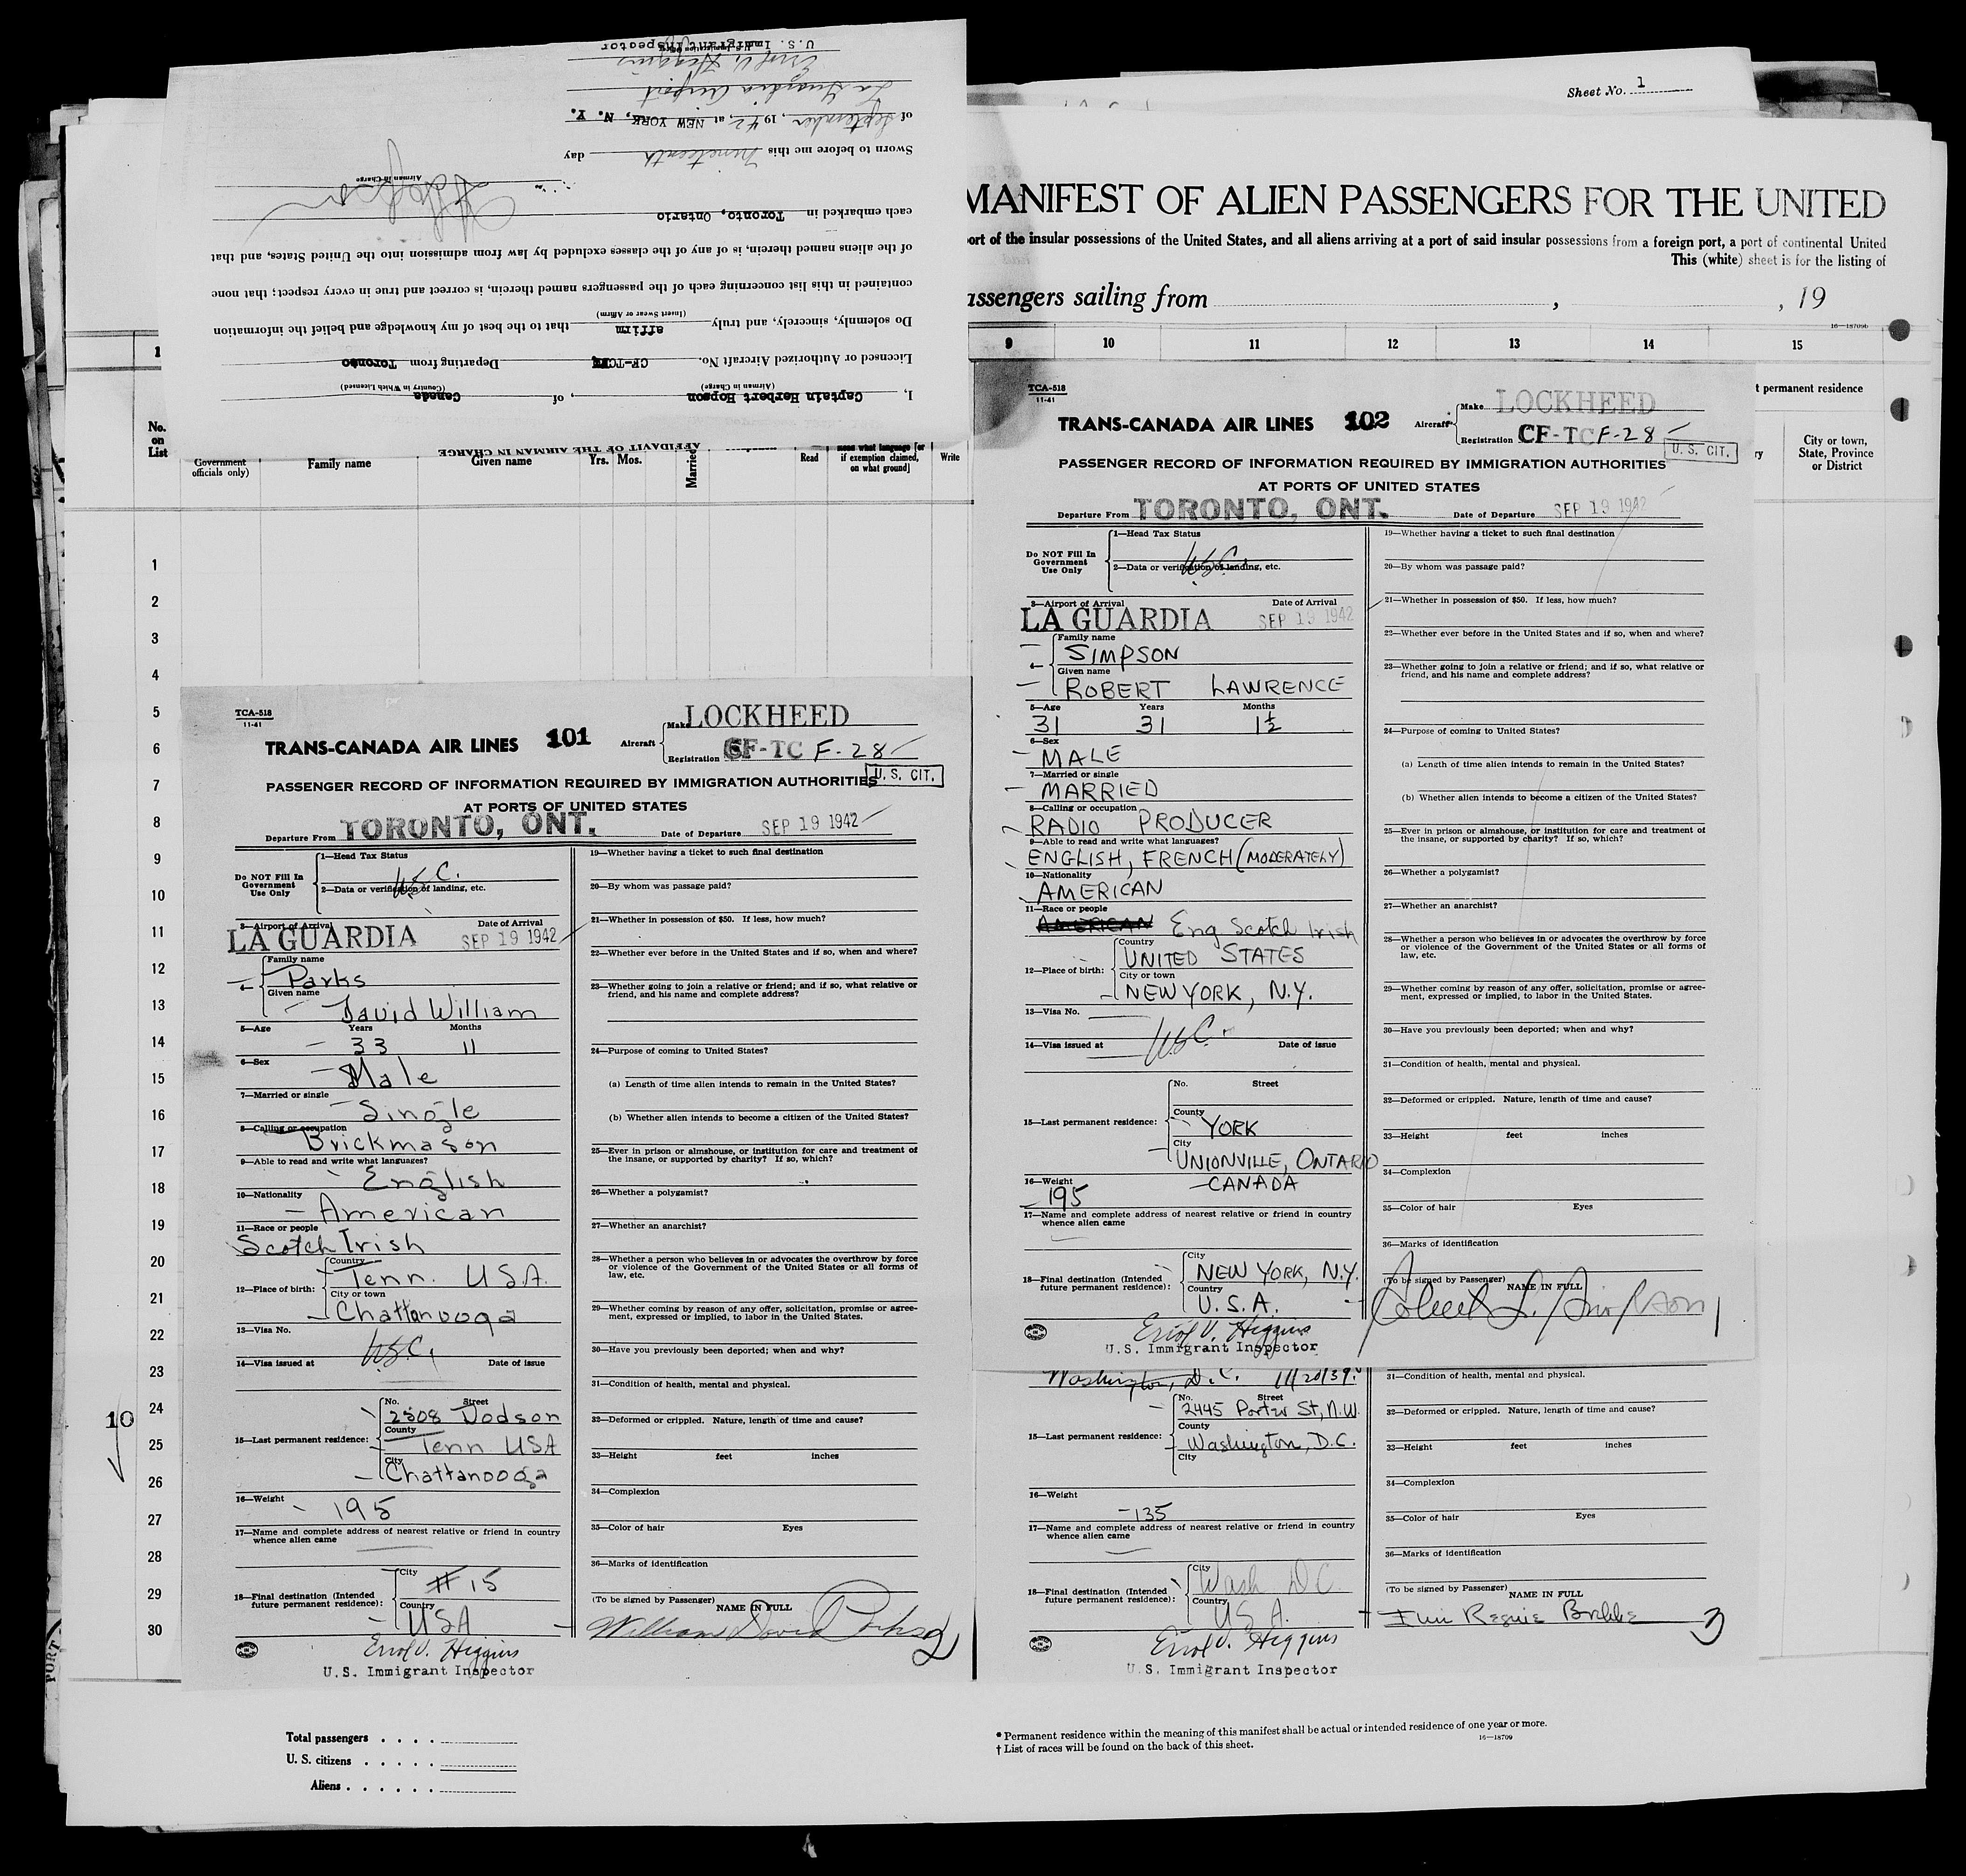 Sheet No. 1
MANIFEST OF ALIEN PASSENGERS FOR THE UNITED
ort of the insular possessions of the United States, and all aliens arriving at a port of said insular possessions from a foreign port, a port of continental United
This (white) sheet is for the listing of
assengers sailing from , , 19
16—18709b
9 10 11 12 13 14 15
t permanent residence
City or town,
State, Province
or District
AFFIDAVIT OF THE AIRMAN IN CHARGE
I, Captain Herbert Hopson, of Canada
(Airman in Charge) (Country in Which Licensed)
Licensed or Authorized Aircraft No. CF-TC Departing from Toronto
Do solemnly, sincerely, and truly affirm that to the best of my knowledge and belief the information
(Insert Swear or Affirm)
contained in this list concerning each of the passengers named therein, is correct and true in every respect; that none
of the aliens named therein, is of any of the classes excluded by law from admission into the United States, and that
each embarked in Toronto, Ontario
Airman in Charge
Sworn to before me this Nineteenth day
of September, 1942, at NEW YORK, N. Y.
La Guardia Airport
Errol V. Higgins
U.S. Immigrant Inspector
1
No.
on
List
Government
officials only)
Family name
Given name
Yrs. Mos.
Married
Read
if exemption claimed,
on what ground]
Write
1
2
3
4
5
6
7
8
9
10
11
12
13
14
15
16
17
18
19
20
21
22
23
24
25
26
27
28
29
30
10
TCA-518
11-41
TRANS-CANADA AIR LINES 101
Aircraft
Make LOCKHEED
Registration CF-TC F-28
U. S. CIT.
PASSENGER RECORD OF INFORMATION REQUIRED BY IMMIGRATION AUTHORITIES
AT PORTS OF UNITED STATES
Departure From TORONTO, ONT. Date of Departure SEP 19 1942
Do NOT Fill In
Government
Use Only
1—Head Tax Status
U.S.C.
2—Data or verification of landing, etc.
3—Airport of Arrival Date of Arrival
LA GUARDIA SEP 19 1942
4
Family name
Parks
Given name
David William
5—Age Years Months
33 11
6—Sex
Male
7—Married or single
Single
8—Calling or occupation
Brickmason
9—Able to read and write what languages?
English
10—Nationality
American
11—Race or people
Scotch Irish
12—Place of birth:
Country
Tenn. U.S.A.
City or town
Chattanooga
13—Visa No.
U.S.C.
14—Visa issued at Date of issue
15—Last permanent residence:
No. Street
2508 Dodson
County
Tenn USA
City
Chattanooga
16—Weight
195
17—Name and complete address of nearest relative or friend in country
whence alien came
18—Final destination (Intended
future permanent residence):
City
# 15
Country
USA
Errol V. Higgins
U.S. Immigrant Inspector
19—Whether having a ticket to such final destination
20—By whom was passage paid?
21—Whether in possession of $50. If less, how much?
22—Whether ever before in the United States and if so, when and where?
23—Whether going to join a relative or friend; and if so, what relative or
friend, and his name and complete address?
24—Purpose of coming to United States?
(a) Length of time alien intends to remain in the United States?
(b) Whether alien intends to become a citizen of the United States?
25—Ever in prison or almshouse, or institution for care and treatment of
the insane, or supported by charity? If so, which?
26—Whether a polygamist?
27—Whether an anarchist?
28—Whether a person who believes in or advocates the overthrow by force
or violence of the Government of the United States or all forms of
law, etc.
29—Whether coming by reason of any offer, solicitation, promise or agree-
ment, expressed or implied, to labor in the United States.
30—Have you previously been deported; when and why?
31—Condition of health, mental and physical.
32—Deformed or crippled. Nature, length of time and cause?
33—Height feet inches
34—Complexion
35—Color of hair Eyes
36—Marks of identification
(To be signed by Passenger) NAME IN FULL
William David Parks
2
TCA-518
11-41
TRANS-CANADA AIR LINES 102
Aircraft
Make LOCKHEED
Registration CF-TC F-28
U. S. CIT.
PASSENGER RECORD OF INFORMATION REQUIRED BY IMMIGRATION AUTHORITIES
AT PORTS OF UNITED STATES
Departure From TORONTO, ONT. Date of Departure SEP 19 1942
Do NOT Fill In
Government
Use Only
1—Head Tax Status
U.S.C.
2—Data or verification of landing, etc.
3—Airport of Arrival Date of Arrival
LA GUARDIA SEP 19 1942
4
Family name
SIMPSON
Given name
ROBERT LAWRENCE
5—Age Years Months
31 31 1½
6—Sex
MALE
7—Married or single
MARRIED
8—Calling or occupation
RADIO PRODUCER
9—Able to read and write what languages?
ENGLISH, FRENCH (MODERATELY)
10—Nationality
AMERICAN
11—Race or people
AMERICAN Eng Scotch Irish
12—Place of birth:
Country
UNITED STATES
City or town
NEW YORK, N.Y.
13—Visa No.
U.S.C.
14—Visa issued at Date of issue
15—Last permanent residence:
No. Street
County
YORK
City
UNIONVILLE, ONTARIO
CANADA
16—Weight
195
17—Name and complete address of nearest relative or friend in country
whence alien came
18—Final destination (Intended
future permanent residence):
City
NEW YORK, N.Y.
Country
U.S.A.
Errol V. Higgins
U.S. Immigrant Inspector
19—Whether having a ticket to such final destination
20—By whom was passage paid?
21—Whether in possession of $50. If less, how much?
22—Whether ever before in the United States and if so, when and where?
23—Whether going to join a relative or friend; and if so, what relative or
friend, and his name and complete address?
24—Purpose of coming to United States?
(a) Length of time alien intends to remain in the United States?
(b) Whether alien intends to become a citizen of the United States?
25—Ever in prison or almshouse, or institution for care and treatment of
the insane, or supported by charity? If so, which?
26—Whether a polygamist?
27—Whether an anarchist?
28—Whether a person who believes in or advocates the overthrow by force
or violence of the Government of the United States or all forms of
law, etc.
29—Whether coming by reason of any offer, solicitation, promise or agree-
ment, expressed or implied, to labor in the United States.
30—Have you previously been deported; when and why?
31—Condition of health, mental and physical.
32—Deformed or crippled. Nature, length of time and cause?
33—Height feet inches
34—Complexion
35—Color of hair Eyes
36—Marks of identification
(To be signed by Passenger) NAME IN FULL
Robert L. Simpson
1
Washington, D.C. 11/20/39
15—Last permanent residence:
No. Street
2445 Porter St, N.W.
County
Washington, D.C.
City
16—Weight
135
17—Name and complete address of nearest relative or friend in country
whence alien came
18—Final destination (Intended
future permanent residence):
City
Wash D.C.
Country
U.S.A.
Errol V. Higgins
U.S. Immigrant Inspector
31—Condition of health, mental and physical.
32—Deformed or crippled. Nature, length of time and cause?
33—Height feet inches
34—Complexion
35—Color of hair Eyes
36—Marks of identification
(To be signed by Passenger) NAME IN FULL
3
Total passengers
U. S. citizens
Aliens
* Permanent residence within the meaning of this manifest shall be actual or intended residence of one year or more.
† List of races will be found on the back of this sheet.
16—18709